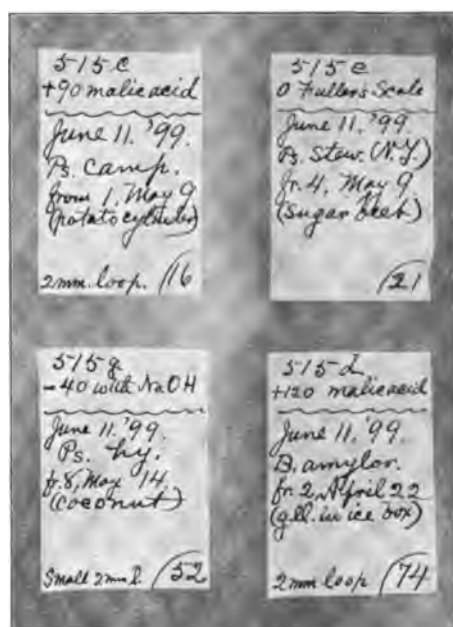 515 c
+90 malic acid
June 11. '99.
Ps. camp.
from 1, May 9
(potato cylinder)
2 mm. loop. 16
515 e
0 Fuller's Scale
June 11. '99.
Ps. Stew. (N.Y.)
fr. 4, May 9
(sugar beet)
21
515 g
-40 with NaOH
June 11. '99.
Ps. hy.
fr. 8, May 14.
(coconut)
Small 2 mm l. 52
515 d
+120 malic acid
June 11. '99.
B. amylov.
fr. 2, April 22
(gel. in ice box)
2 mm loop 74